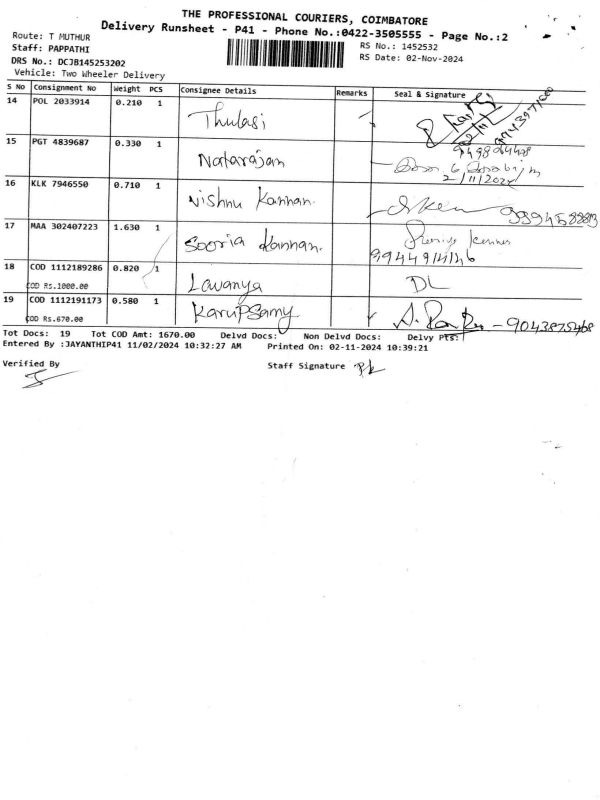 THE PROFESSIONAL COURIERS, COIMBATORE
Delivery Runsheet - P41 - Phone No.:0422-3505555 - Page No.:2
Route: T MUTHUR
RS No.: 1452532
Staff: PAPPATHI
RS Date: 02-Nov-2024
DRS No.: DCJB145253202
Vehicle: Two Wheeler Delivery
S No Consignment No Weight PCS Consignee Details Remarks Seal & Signature
14 POL 2033914 0.210 1 Thulasi
15 PGT 4839687 0.330 1 Natarajan
2/11/2024
16 KLK 7946550 0.710 1 Vishnu Kannan.
17 MAA 302407223 1.630 1 Sooria Kannan.
18 COD 1112189286 0.820 1 Lavanya DL
COD RS.1000.00
19 COD 1112191173 0.580 1 Karupsamy
COD RS.670.00
Tot Docs: 19 Tot COD Amt: 1670.00 Delvd Docs: Non Delvd Docs: Delvy Pts:
Entered By :JAYANTHIP41 11/02/2024 10:32:27 AM Printed On: 02-11-2024 10:39:21
Verified By
Staff Signature